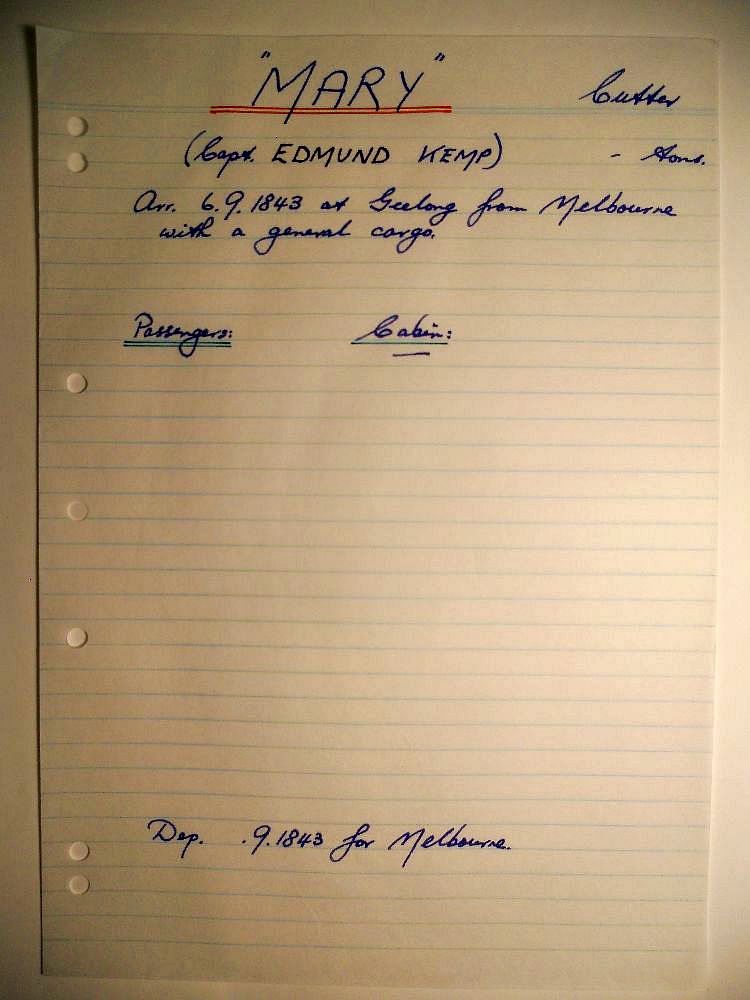 "MARY" Cutter
(Capt. EDMUND KEMP) - tons.
Arr. 6.9.1843 at Geelong from Melbourne
with a general cargo.
Passengers: Cabin:
Dep. .9.1843 for Melbourne.